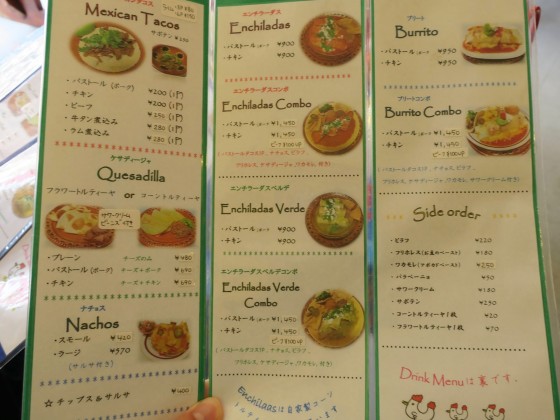 Mexican Tacos
サボテン ¥250
・パストール (ポーク) ¥200 (1P)
・チキン ¥200 (1P)
・ビーフ ¥250 (1P)
・牛タン煮込み ¥280 (1P)
・ラム煮込み ¥280 (1P)
ケサディージャ
Quesadilla
フラワートルティーヤ or コーントルティーヤ
・プレーン チーズのみ ¥480
・パストール (ポーク) チーズ+ポーク ¥690
・チキン チーズ+チキン ¥690
ナチョス
Nachos
・スモール ¥420
・ラージ ¥570
(サルサ付き)
☆ チップス&サルサ ¥400
エンチラーダス
Enchiladas
・パストール (ポーク) ¥900
・チキン ¥900
エンチラーダスコンボ
Enchiladas Combo
・パストール (ポーク) ¥1,450
・チキン ¥1,450
ビーフ¥100UP
エンチラーダスベルデ
Enchiladas Verde
・パストール (ポーク) ¥900
・チキン ¥900
エンチラーダスベルデコンボ
Enchiladas Verde
Combo
・パストール (ポーク) ¥1,450
・チキン ¥1,450
ビーフ¥100UP
Enchiladasは自家製コーン
ブリート
Burrito
・パストール (ポーク) ¥950
・チキン ¥950
ブリートコンボ
Burrito Combo
・パストール (ポーク) ¥1,450
・チキン ¥1,450
ビーフ¥100UP
Side order
・ピラフ ¥220
・フリホレス (お豆のペースト) ¥180
・ワカモレ (アボカドペースト) ¥250
・ハラペーニョ ¥50
・サワークリーム ¥180
・サボテン ¥250
・コーントルティーヤ1枚 ¥50
・フラワートルティーヤ1枚 ¥70
Drink Menuは裏です.